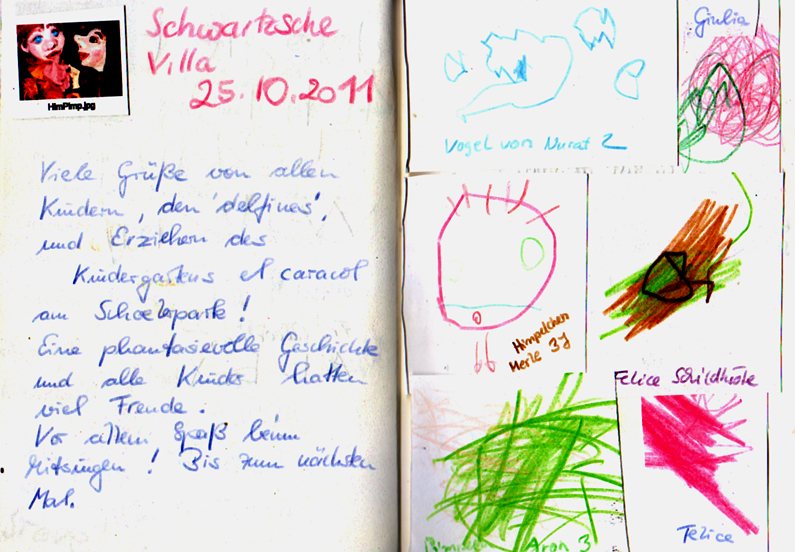 HimPimp.jpg
Schwartzsche
Villa
25.10.2011
Viele Grüße von allen
Kindern, den 'delfines',
und Erziehern des
Kindergartens el caracol
am Schoelerpark!
Eine phantasievolle Geschichte
und alle Kinder hatten
viel Freude.
Vor allem Spaß beim
Mitsingen! Bis zum nächsten
Mal.
Vogel von Nurat 2
Giulia
Himpelchen
Merle 3J
Felice Schildkröte
Aron 3
Felice